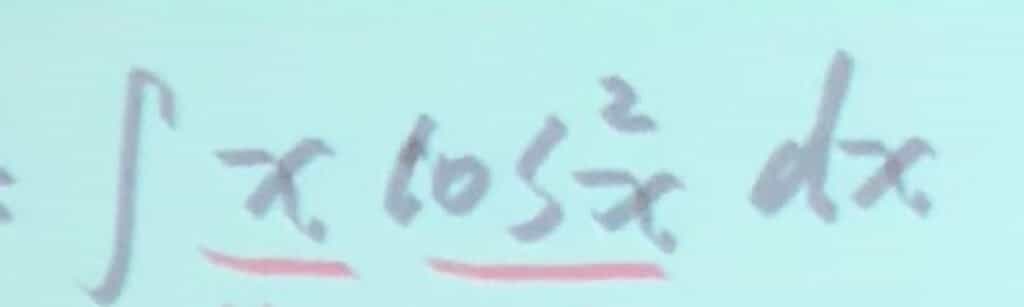 = ∫ x cos²x dx